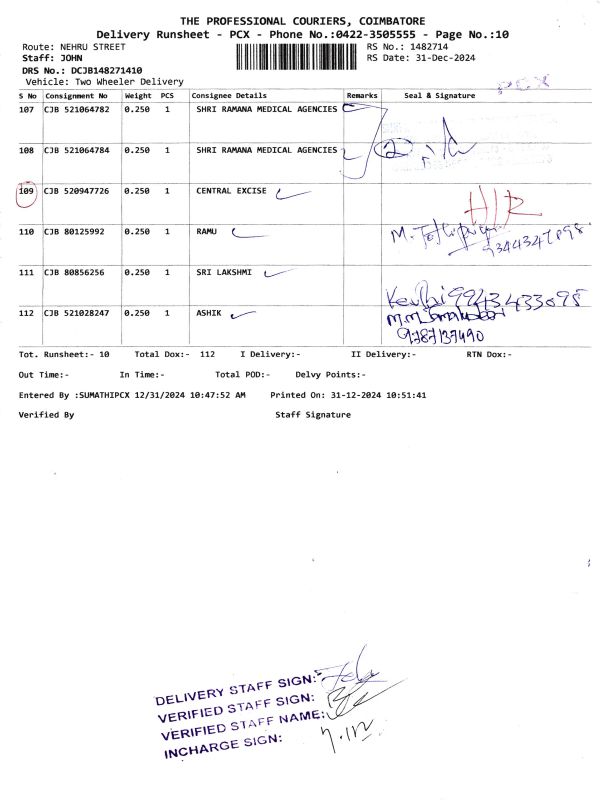 THE PROFESSIONAL COURIERS, COIMBATORE
Delivery Runsheet - PCX - Phone No.:0422-3505555 - Page No.:10
Route: NEHRU STREET RS No.: 1482714
Staff: JOHN RS Date: 31-Dec-2024
DRS No.: DCJB148271410
Vehicle: Two Wheeler Delivery PCX
S No Consignment No Weight PCS Consignee Details Remarks Seal & Signature
107 CJB 521064782 0.250 1 SHRI RAMANA MEDICAL AGENCIES
108 CJB 521064784 0.250 1 SHRI RAMANA MEDICAL AGENCIES 2
109 CJB 520947726 0.250 1 CENTRAL EXCISE
110 CJB 80125992 0.250 1 RAMU
9344347898
111 CJB 80856256 0.250 1 SRI LAKSHMI
9943433098
112 CJB 521028247 0.250 1 ASHIK
9787137490
Tot. Runsheet:- 10 Total Dox:- 112 I Delivery:- II Delivery:- RTN Dox:-
Out Time:- In Time:- Total POD:- Delvy Points:-
Entered By :SUMATHIPCX 12/31/2024 10:47:52 AM Printed On: 31-12-2024 10:51:41
Verified By Staff Signature
DELIVERY STAFF SIGN:
VERIFIED STAFF SIGN:
VERIFIED STAFF NAME:
INCHARGE SIGN: